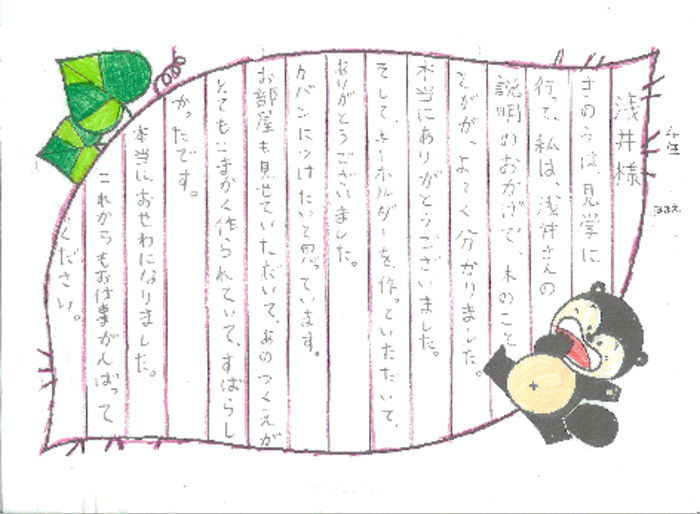 浅井様
きのうは見学に
行って、私は、浅井さんの
説明のおかげで、木のこと
とがが、よーく分かりました。
本当にありがとうございました。
そして、キーホルダーを、作っていただいて、
ありがとうございました。
カバンにつけたいと思っています。
お部屋も見せていただいて、あのつくえが
とてもこまかく作られていて、すばらし
かったです。
本当におせわになりました。
これからもお仕事がんばって
ください。